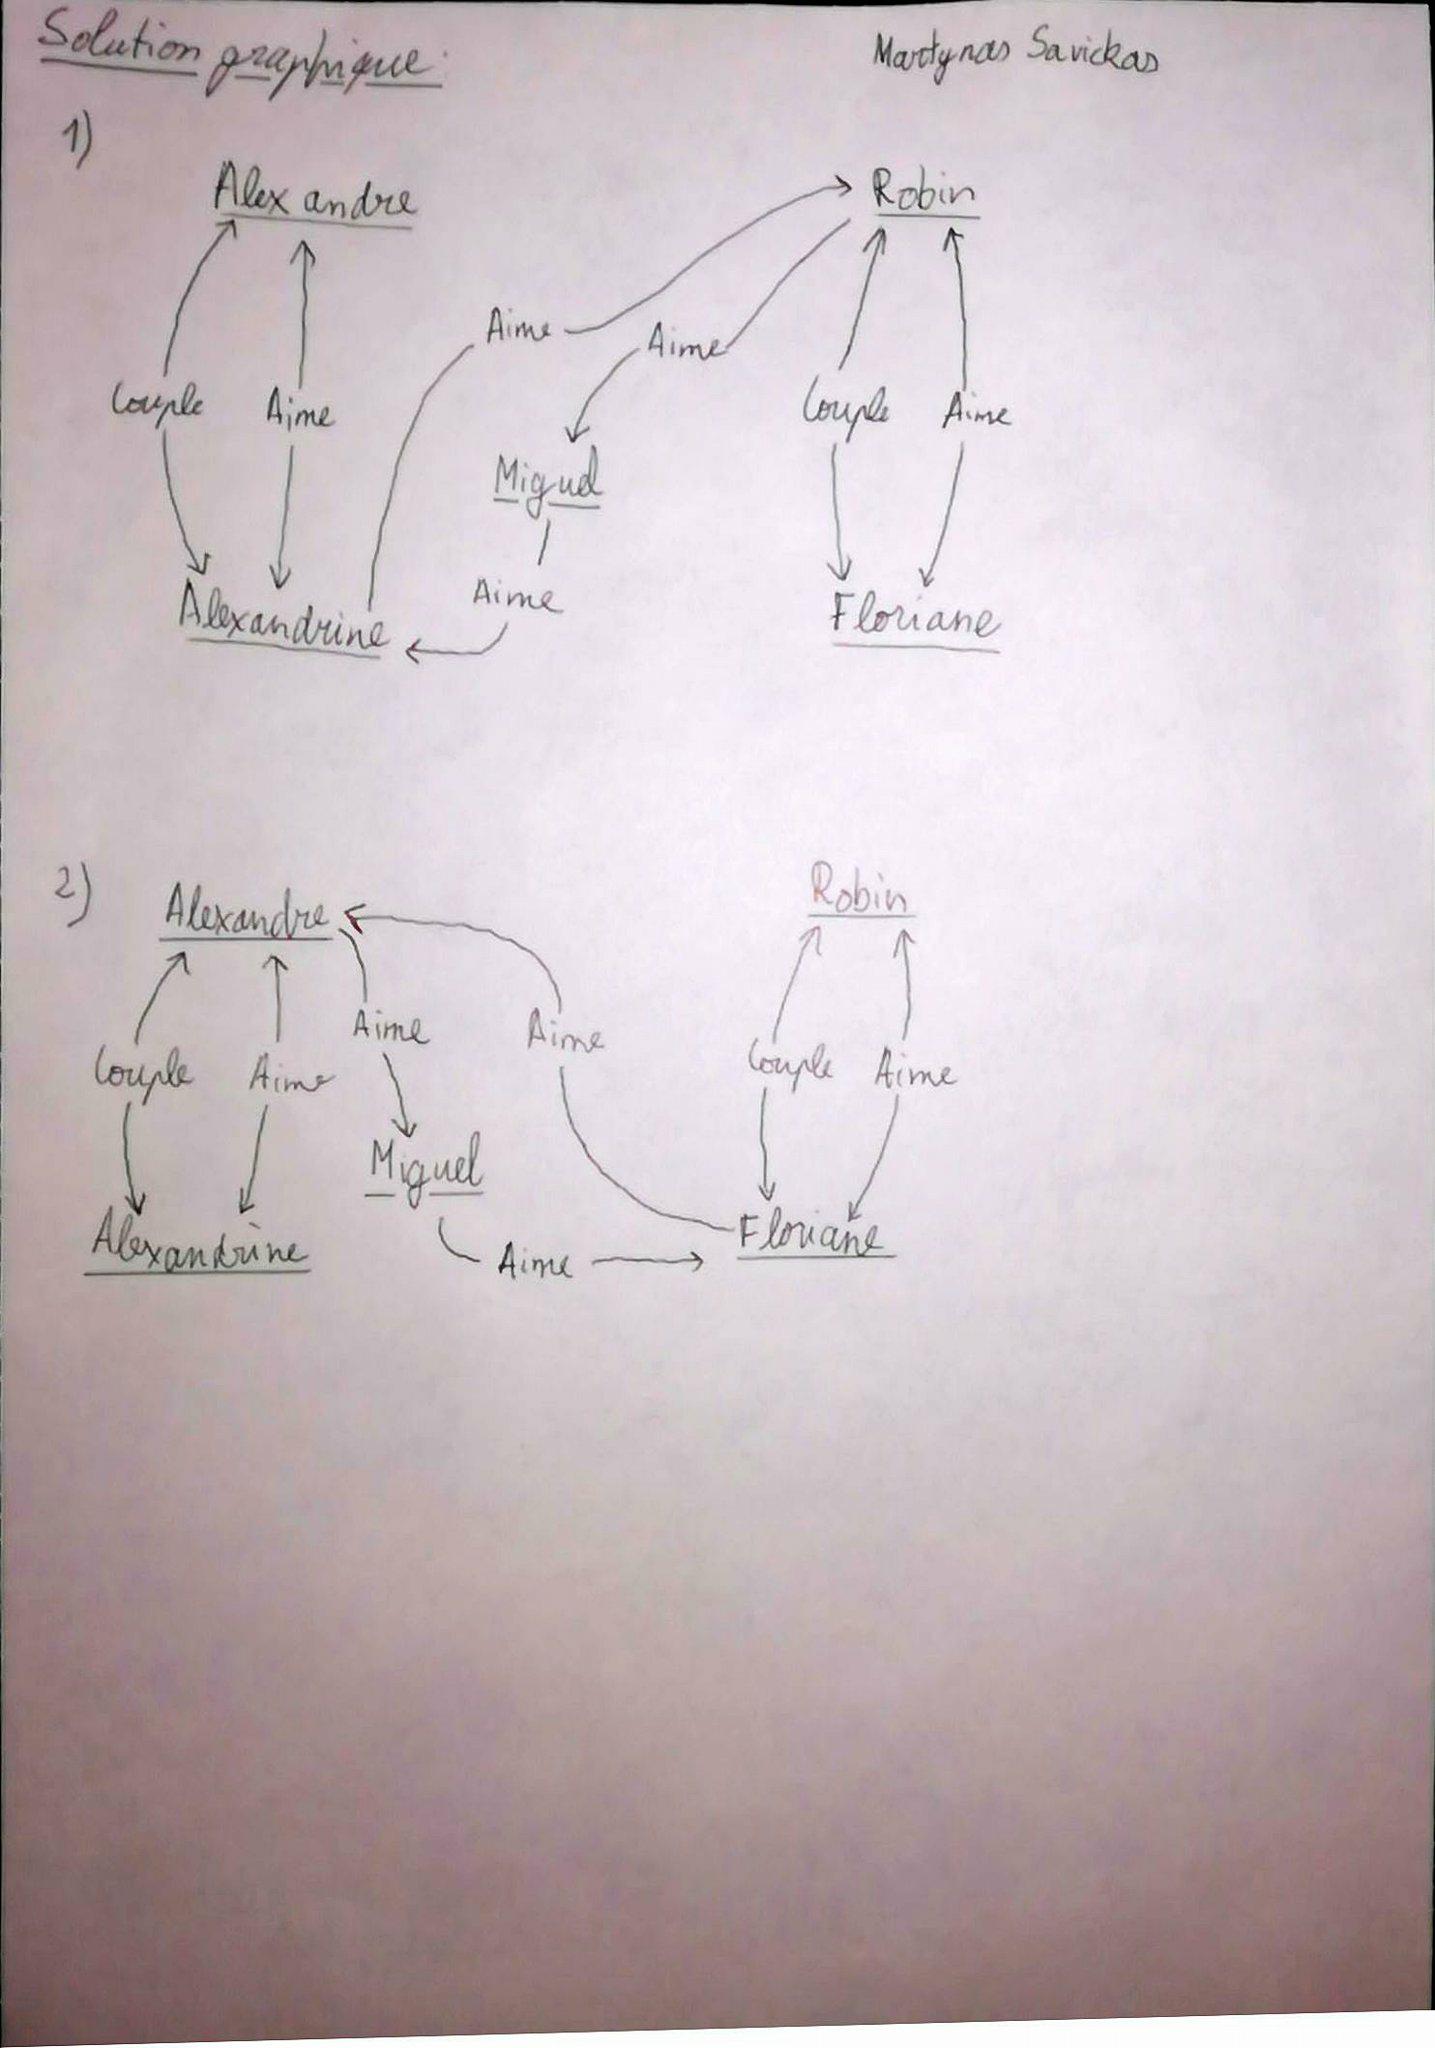 Solution graphique
Martynas Savickas
1)
Alexandre
Robin
Aime
Aime
Couple
Aime
Couple
Aime
Miguel
Aime
Alexandrine
Floriane
2)
Alexandre
Robin
Aime
Aime
Couple
Aime
Couple
Aime
Miguel
Alexandrine
Aime
Floriane